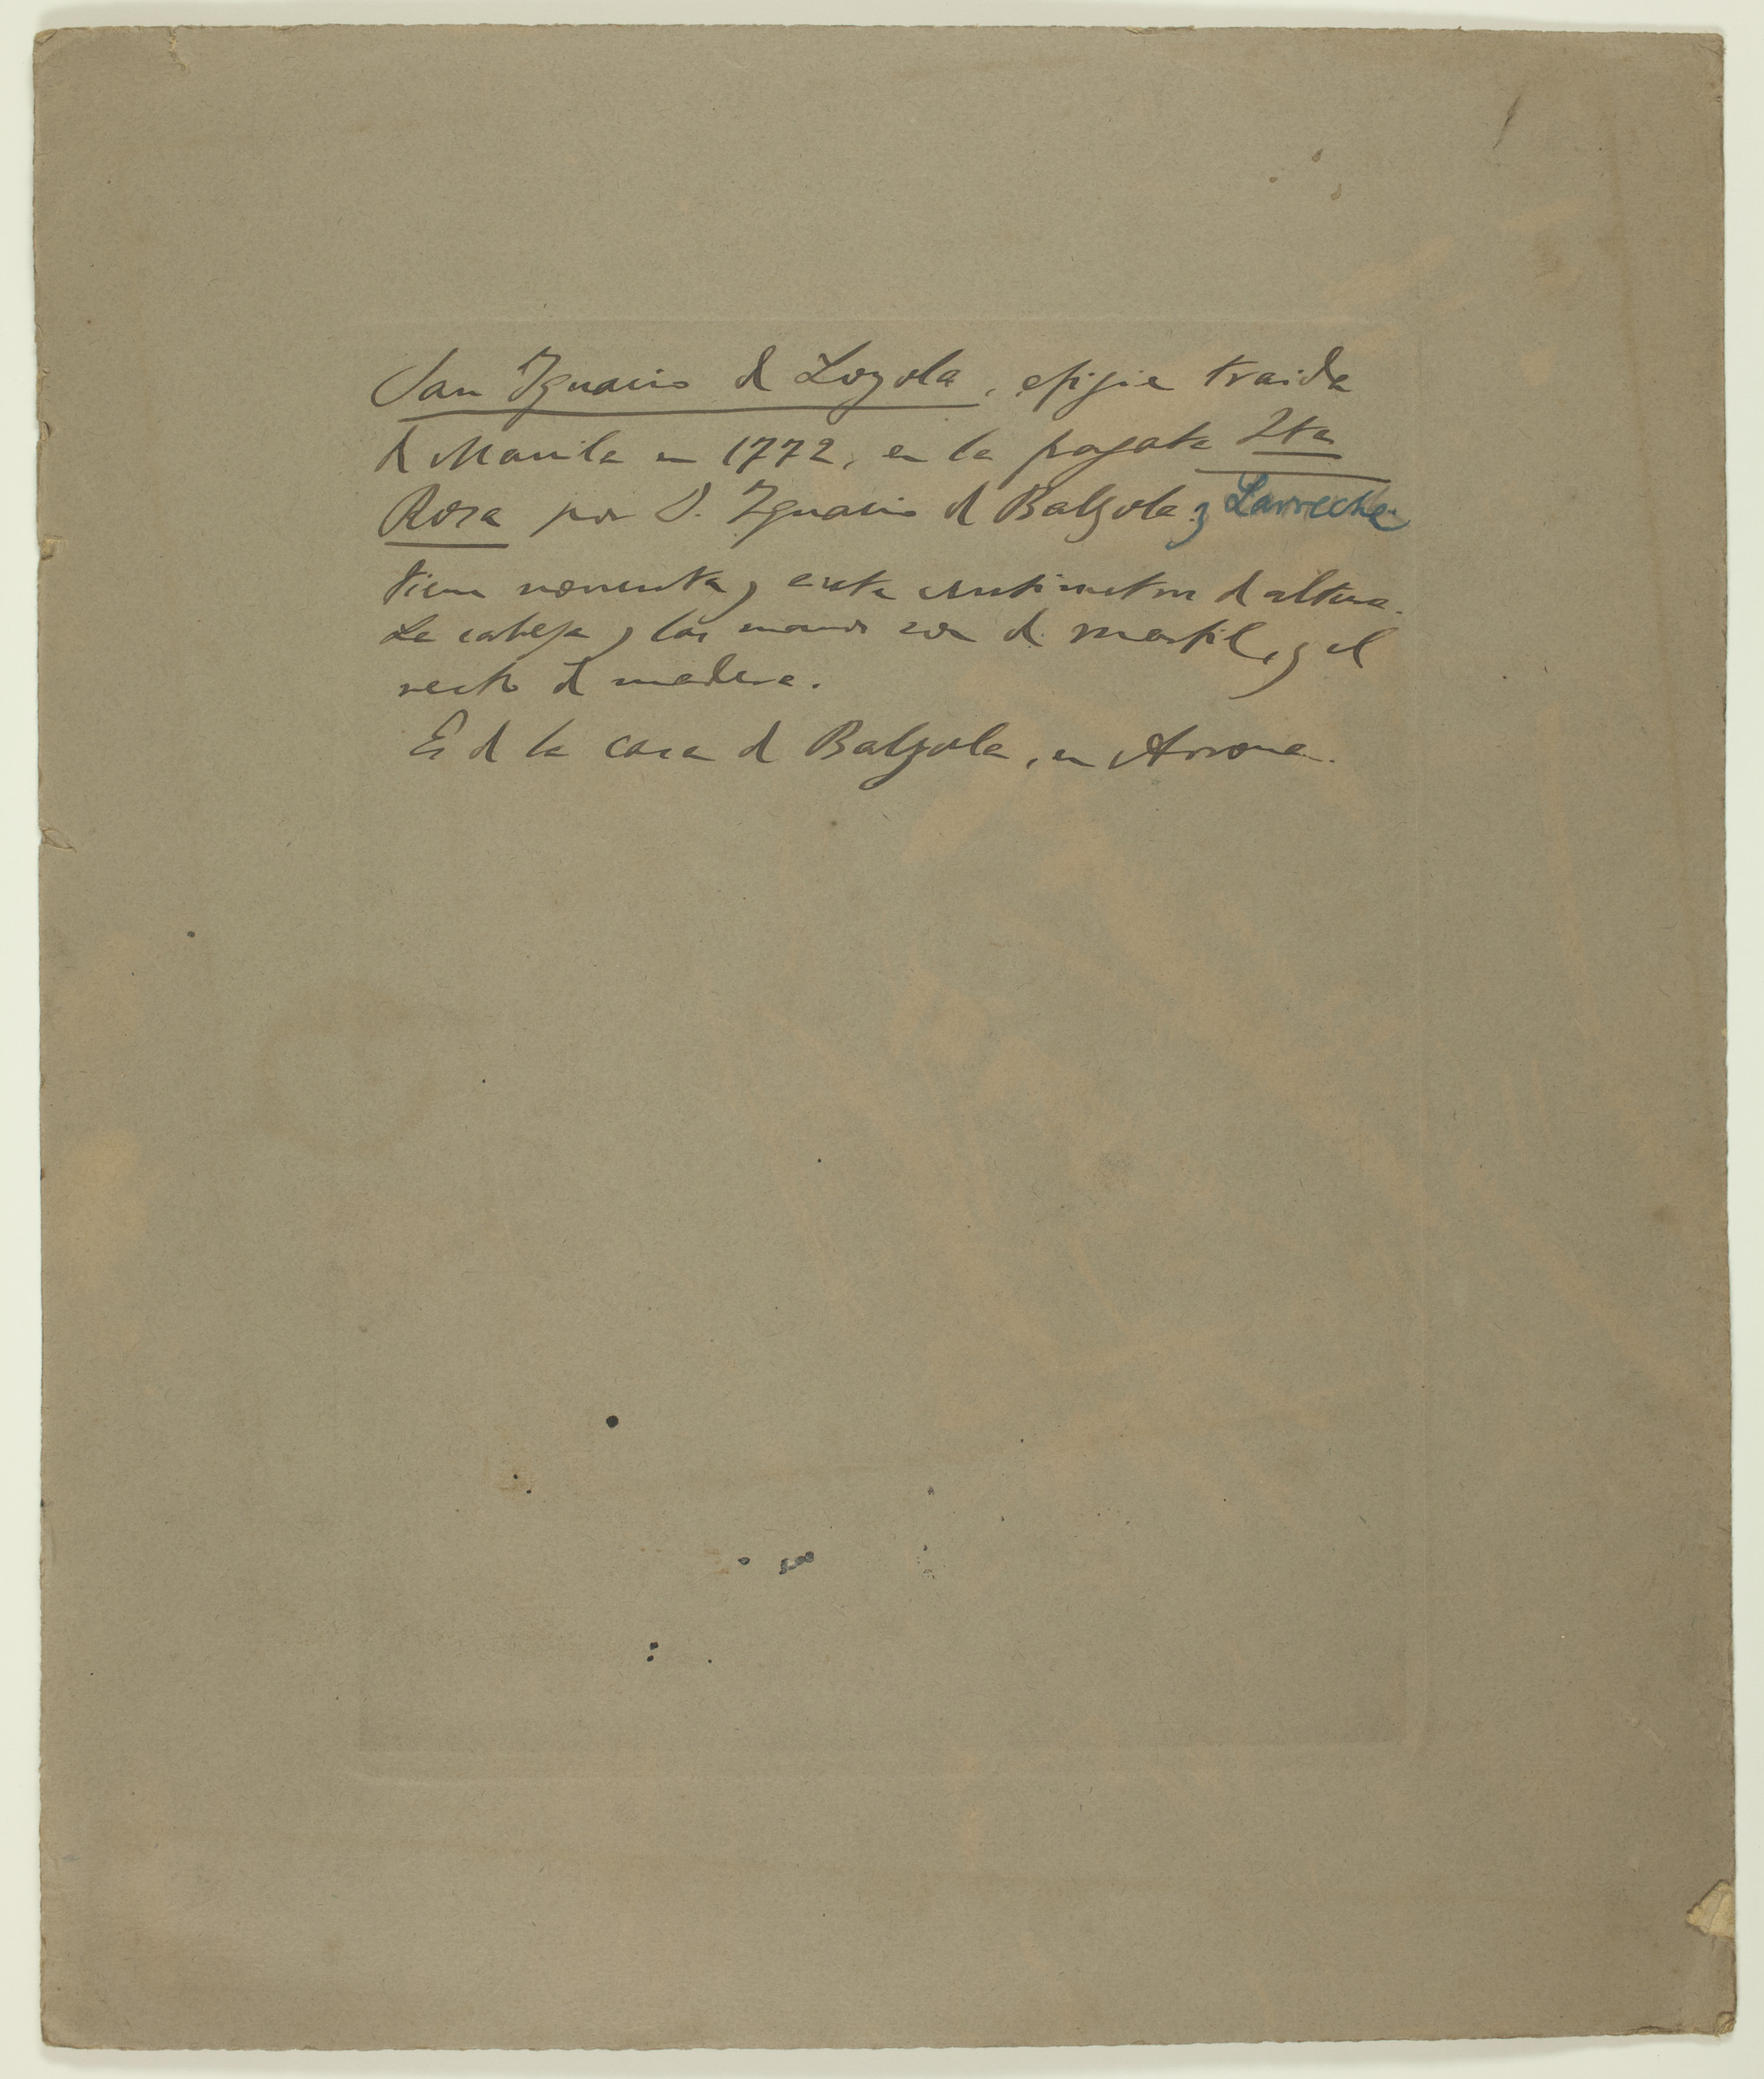 San Ignacio de Loyola, efigie traida
de Manila en 1772, en la fragata Sta
Rosa por D. Ignacio de Balzola y Larreche
tiene noventa y centimetros de altura.
La cabeza y las manos son de marfil, y el
resto de madera.
Es de la casa de Balzola, en Arrona.